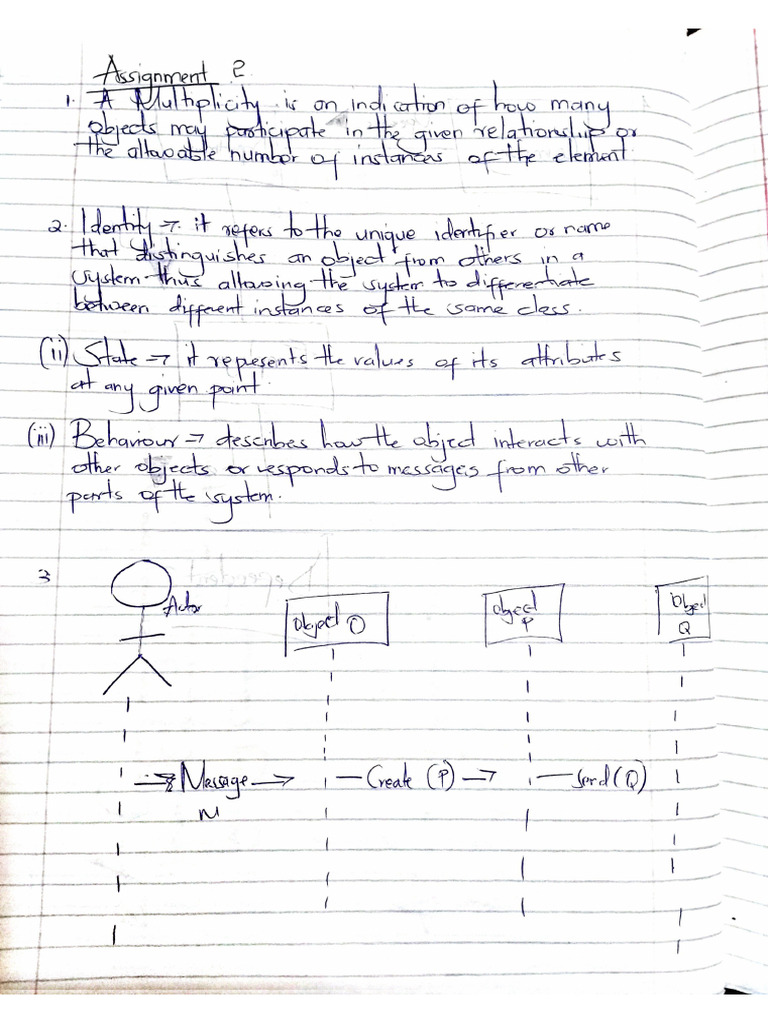 Assignment 2
1. A Multiplicity is an indication of how many
objects may participate in the given relationship or
the allowable number of instances of the element
2. Identity → it refers to the unique identifier or name
that distinguishes an object from others in a
system thus allowing the system to differentiate
between different instances of the same class.
(ii) State → it represents the values of its attributes
at any given point
(iii) Behaviour → describes how the object interacts with
other objects or responds to messages from other
parts of the system.
3
Actor
Object O
Object P
Object Q
Message M
Create (P)
Send (Q)